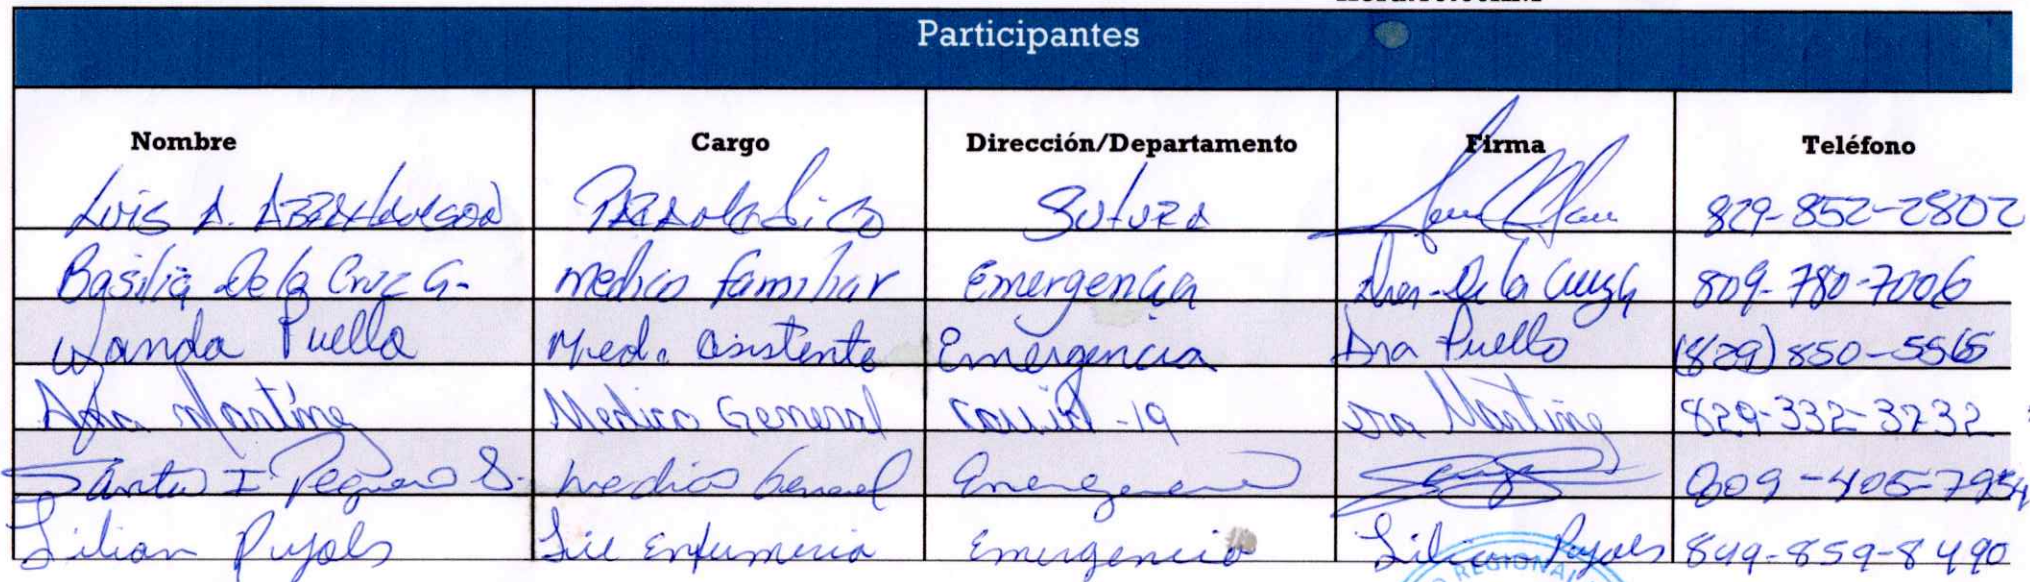 Participantes
Nombre Cargo Dirección/Departamento Firma Teléfono
Luis A. Sutura 829-852-2802
Basilia De la Cruz G. medico familiar Emergencia Dra. De la Cruz G 809-780-7006
Wanda Puello Med. asistente Emergencia Dra Puello (829) 850-5565
Martínez Medico General Covid-19 Dra Martínez 829-332-3232
I Peguero S. medico General Emergencia 809-405-7954
Lilian Pujols Lic Enfermeria Emergencia Lilian Pujols 849-859-8490
REGIONAL